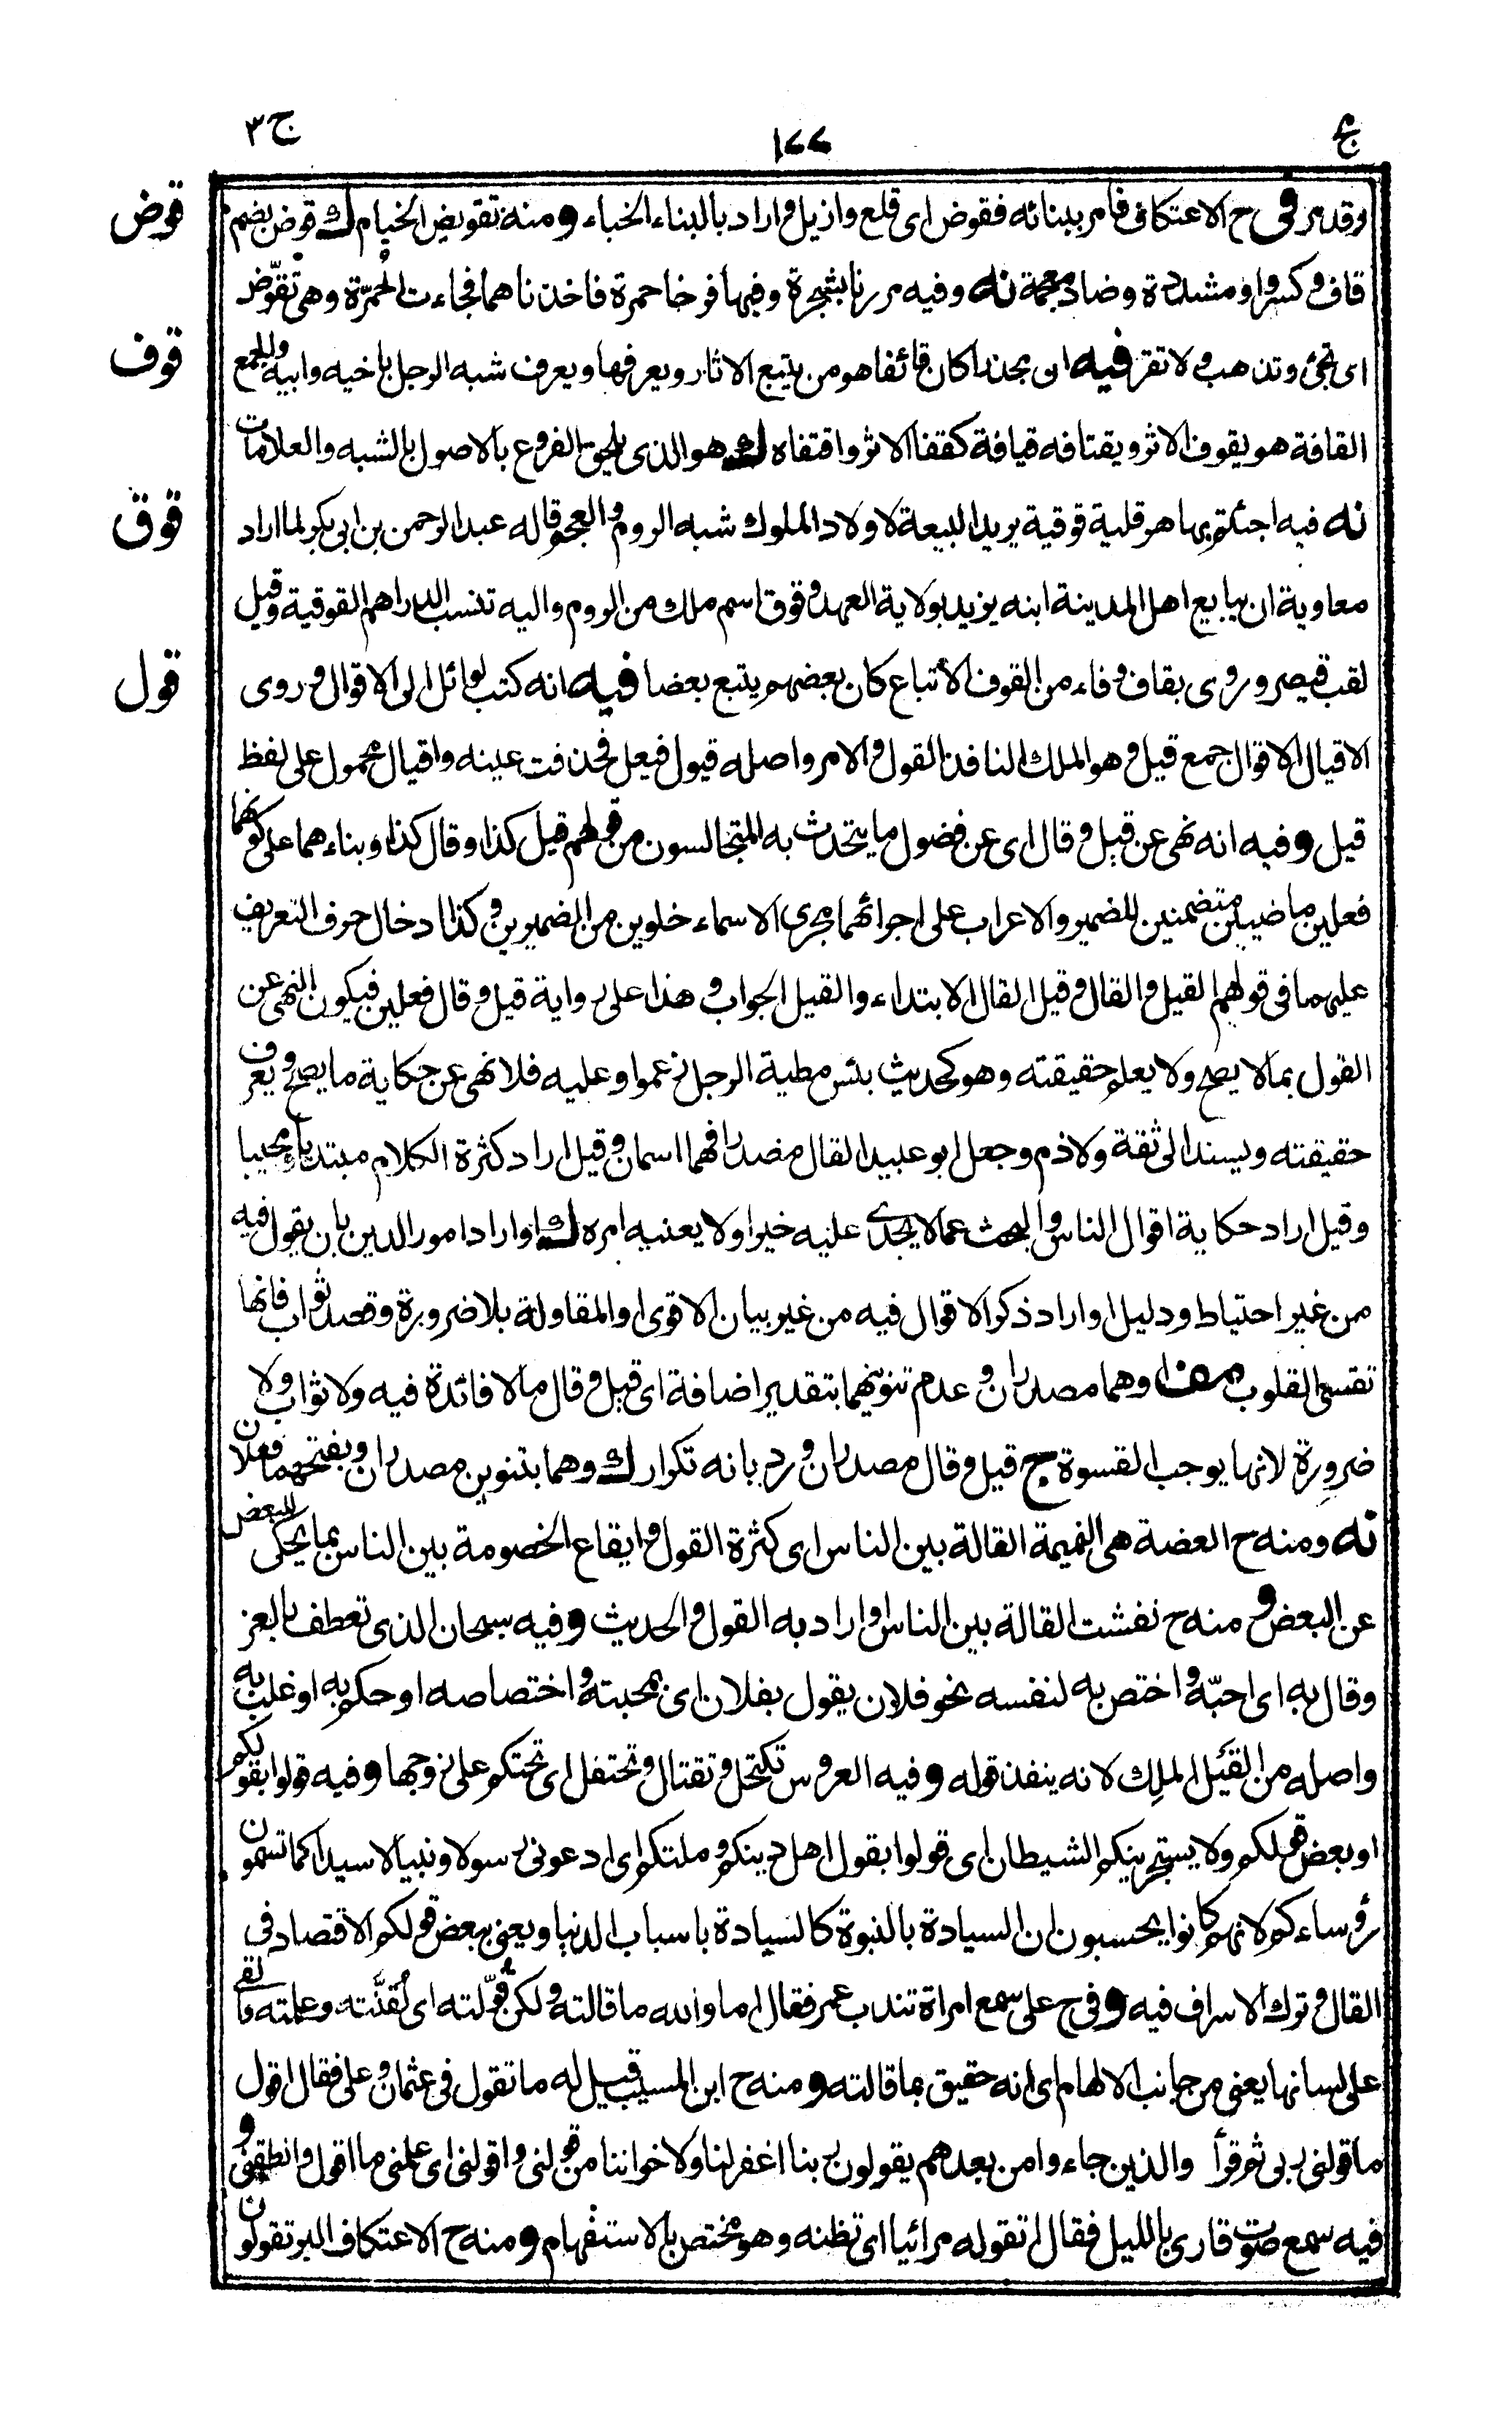 ع
١٧٧
ج ٣
وقدر في ح الاعتكاف فامر ببنائه فقوض اى قلع وازيل واراد بالبناء الخباء ومنه تقويض الخيام ك قوض بضم
قوض
قاف وكسر واو مشددة وضاد معجمة نه وفيه مررنا بشجرة وفيها فرخا حمرة فاخذناهما فجاءت الحمرة وهى تقوض
اى تجئ وتذهب ولا تقر فيه ان مجززا كان قائفا هو من يتبع الاثار ويعرفها ويعرف شبه الرجل باخيه وابيه والجمع
قوف
القافة هو يقوف الاثر ويقتافه قيافة كقفا الاثر واقتفاه ك هو الذى يلحق الفروع بالاصول بالشبه والعلامات
نه فيه اجئتم بها هرقلية قوقية يريد البيعة لاولاد الملوك شبه الروم والعجم قاله عبد الرحمن بن ابى بكر لما اراد
قوق
معاوية ان يبايع اهل المدينة ابنه يزيد بولاية العهد وقوق اسم ملك من الروم واليه تنسب الدراهم القوقية وقيل
لقب قيصر وروى بقاف وفاء من القوف الاتباع كان بعضهم يتبع بعضا فيه انه كتب لوائل الى الاقوال وروى
قول
الاقيال الاقوال جمع قيل وهو الملك النافذ القول والامر واصله قيول فيعل فحذفت عينه واقيال محمول على لفظ
قيل وفيه انه نهى عن قيل وقال اى عن فضول ما يتحدث به المتجالسون من قولهم قيل كذا وقال كذا وبناءهما على كونهما
فعلين ماضيين متضمنين للضمير والاعراب على اجرائهما مجرى الاسماء خلوين من الضميرين وكذا ادخال حرف التعريف
عليهما فى قولهم القيل والقال وقيل القال الابتداء والقيل الجواب وهذا على رواية قيل وقال فعلين فيكون النهى عن
القول بما لا يصح ولا يعلم حقيقته وهو كحديث بئس مطية الرجل زعموا وعليه فلا نهى عن حكاية ما يصح ويعرف
حقيقته ويسند الى ثقة ولا ذم وجعل ابو عبيد القال مصدرا فهما اسمان وقيل اراد كثرة الكلام مبتديا ومجيبا
وقيل اراد حكاية اقوال الناس والبحث عما لا يجدى عليه خيرا ولا يعنيه امره ك او اراد امور الدين بان يقول فيه
من غير احتياط ودليل او اراد ذكر الاقوال فيه من غير بيان الاقوى او المقاولة بلا ضرورة وقصد ثواب فانها
تقسى القلوب مف وهما مصدران وعدم تنوينهما بتقدير اضافة اى قيل وقال ما لا فائدة فيه ولا ثواب ولا
ضرورة لانها يوجب القسوة ج قيل وقال مصدران ورد بانه تكرار ك وهما بتنوين مصدران وبفتحهما فعلان
نه ومنه ح العضة هى النميمة القالة بين الناس اى كثرة القول وايقاع الخصومة بين الناس بما يحكى للبعض
عن البعض ومنه ح نفشت القالة بين الناس واراد به القول والحديث وفيه سبحان الذى تعطف بالعز
وقال به اى احبه واختص به لنفسه نحو فلان يقول بفلان اى بمحبته واختصاصه او حكم به او غلب به
واصله من القيل الملك لانه ينفذ قوله وفيه العروس تكتحل وتقتال وتحتفل اى تحتكم على زوجها وفيه قولوا بقولكم
او بعض قولكم ولا يستجرينكم الشيطان اى قولوا بقول اهل دينكم وملتكم اى ادعونى رسولا ونبيا لا سيدا كما تسمون
رؤساءكم لانهم كانوا يحسبون ان السيادة بالنبوة كالسيادة باسباب الدنيا ويعنى ببعض قولكم الاقتصاد فى
القال وترك الاسراف فيه وفى ح على سمع امراة تندب عمر فقال اما والله ما قالته ولكن قولته اى لقنته وعلمته والقى
على لسانها يعنى من جانب الالهام اى انه حقيق بما قالته ومنه ح ابن المسيب قيل له ما تقول فى عثمان وعلى فقال اقول
ما قولنى ربى ثم قرأ والذين جاءوا من بعدهم يقولون ربنا اغفر لنا ولاخواننا من قولنى واقولنى اى علمنى ما اقول وانطقنى و
فيه سمع صوت قارى بالليل فقال اتقوله مرائيا اى تظنه وهو مختص بالاستفهام ومنه ح الاعتكاف البر تقولون